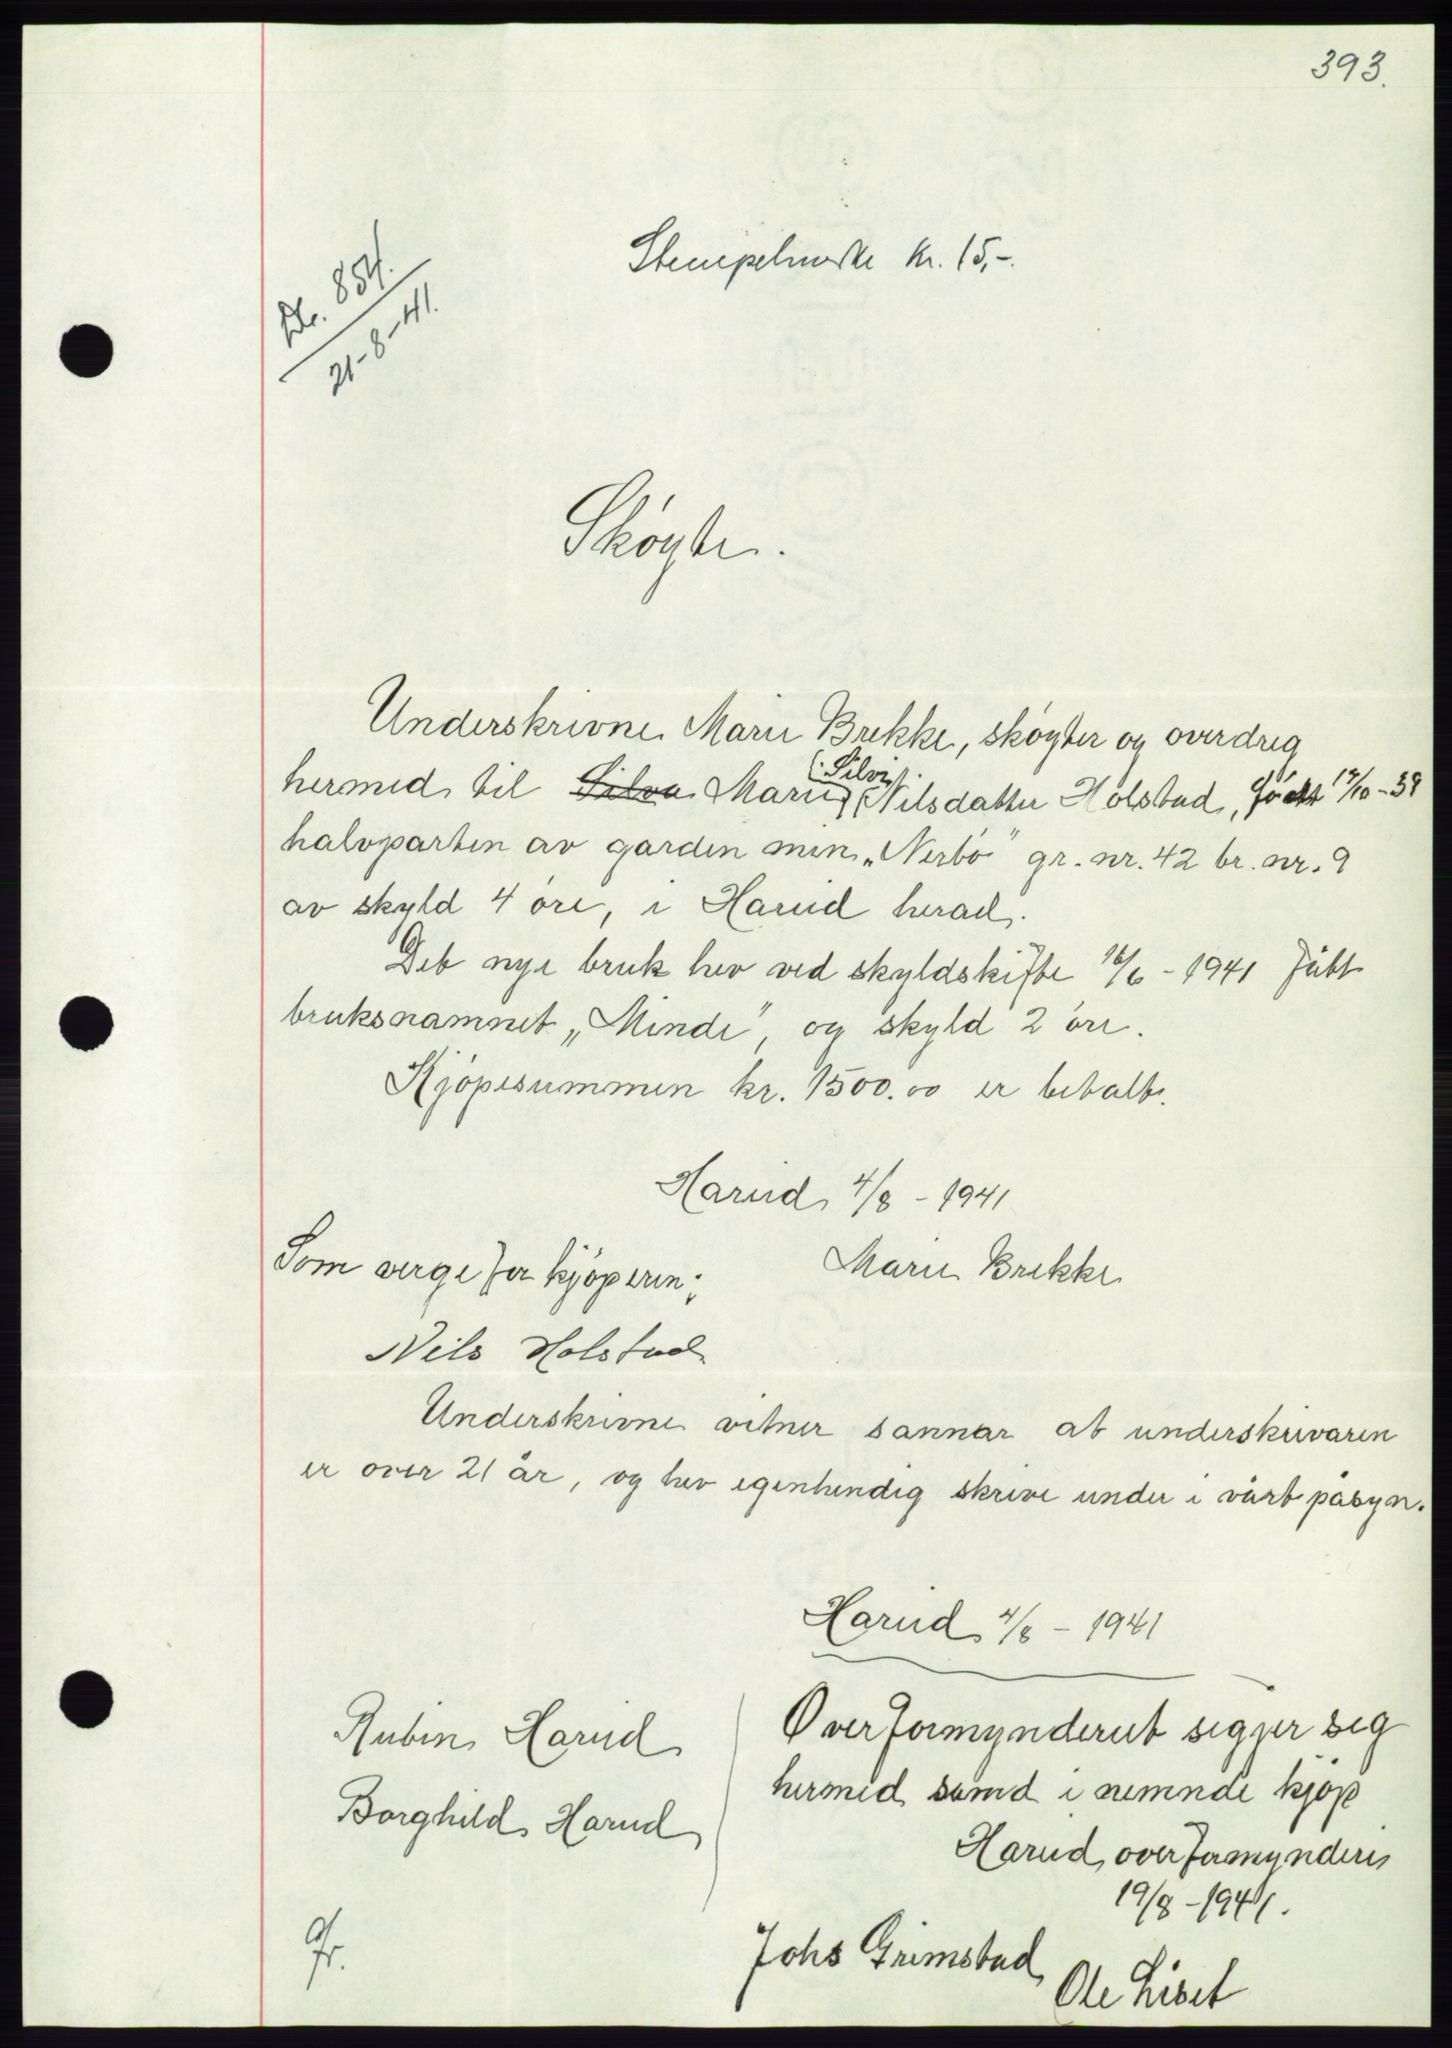 393.
Stempelmerke kr. 15,-.
Nr. 854.
21-8-41.
Skøyte.
Underskrivne Marie Brekke, skøyter og overdreg
(: Silvi :)
hermed til ~~Silva~~ Marie Nilsdatter Holstad, født 17/10-38
halvparten av garden min „Nerbø" gr. nr. 42 br. nr. 9
av skyld 4 øre, i Hareid herad.
Det nye bruk hev ved skyldskifte 16/6 - 1941 fått
bruksnamnet „Minde", og skyld 2 øre.
Kjøpesummen kr. 1500.00 er betalt.
Hareid 4/8 - 1941
Marie Brekke
Som verge for kjøperen:
Nils Holstad
Underskrivne vitner sannar at underskrivaren
er over 21 år, og hev egenhendig skrive under i vårt påsyn.
Hareid 4/8 - 1941
Rubin Hareid
Borghild Hareid
Overformynderiet segjer seg
hermed samd i nemnde kjøp
Hareid overformynderi
19/8-1941.
Johs Grimstad
Ole Liset
Gr.